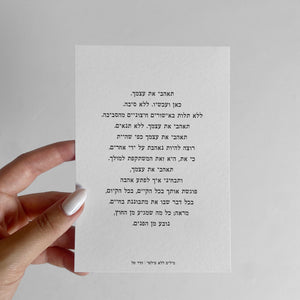 תאהבי את עצמך.
כאן ועכשיו. ללא סיבה.
ללא תלות באישורים חיצוניים מהסביבה.
תאהבי את עצמך. ללא תנאים.
תאהבי את עצמך כפי שהיית
רוצה להיות נאהבת על ידי אחרים.
כי את, היא זאת המשתקפת למולך.
תאהבי את עצמך,
ותבחיני איך לפתע אהבה
פוגשת אותך בכל הקיים, בכל הקיום,
בכל דבר שבו את מתבוננת בחיים.
מראה: כל מה שמגיע מן החוץ,
נובע מן הפנים.
מילים ללא